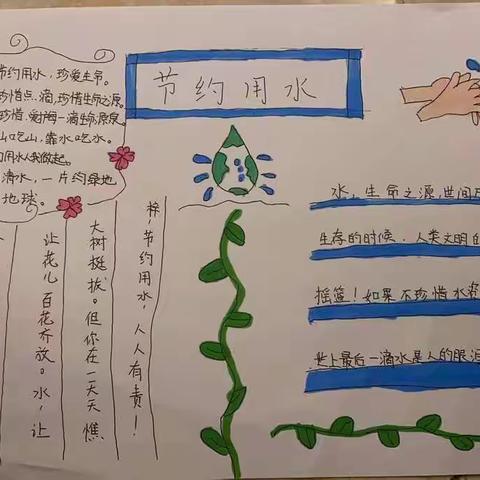 节约用水
节约用水，珍爱生命。
珍惜点滴，珍惜生命之源。
山吃山，靠水吃水。
用水从我做起。
滴水，一片约绿地
地球。
让花儿百花齐放。水，让
大树挺拔。但你在一天天憔
悴，节约用水，人人有责！
水，生命之源，世间
生存的时候，人类文明的
摇篮！如果不珍惜水
世上最后一滴水是人的眼泪